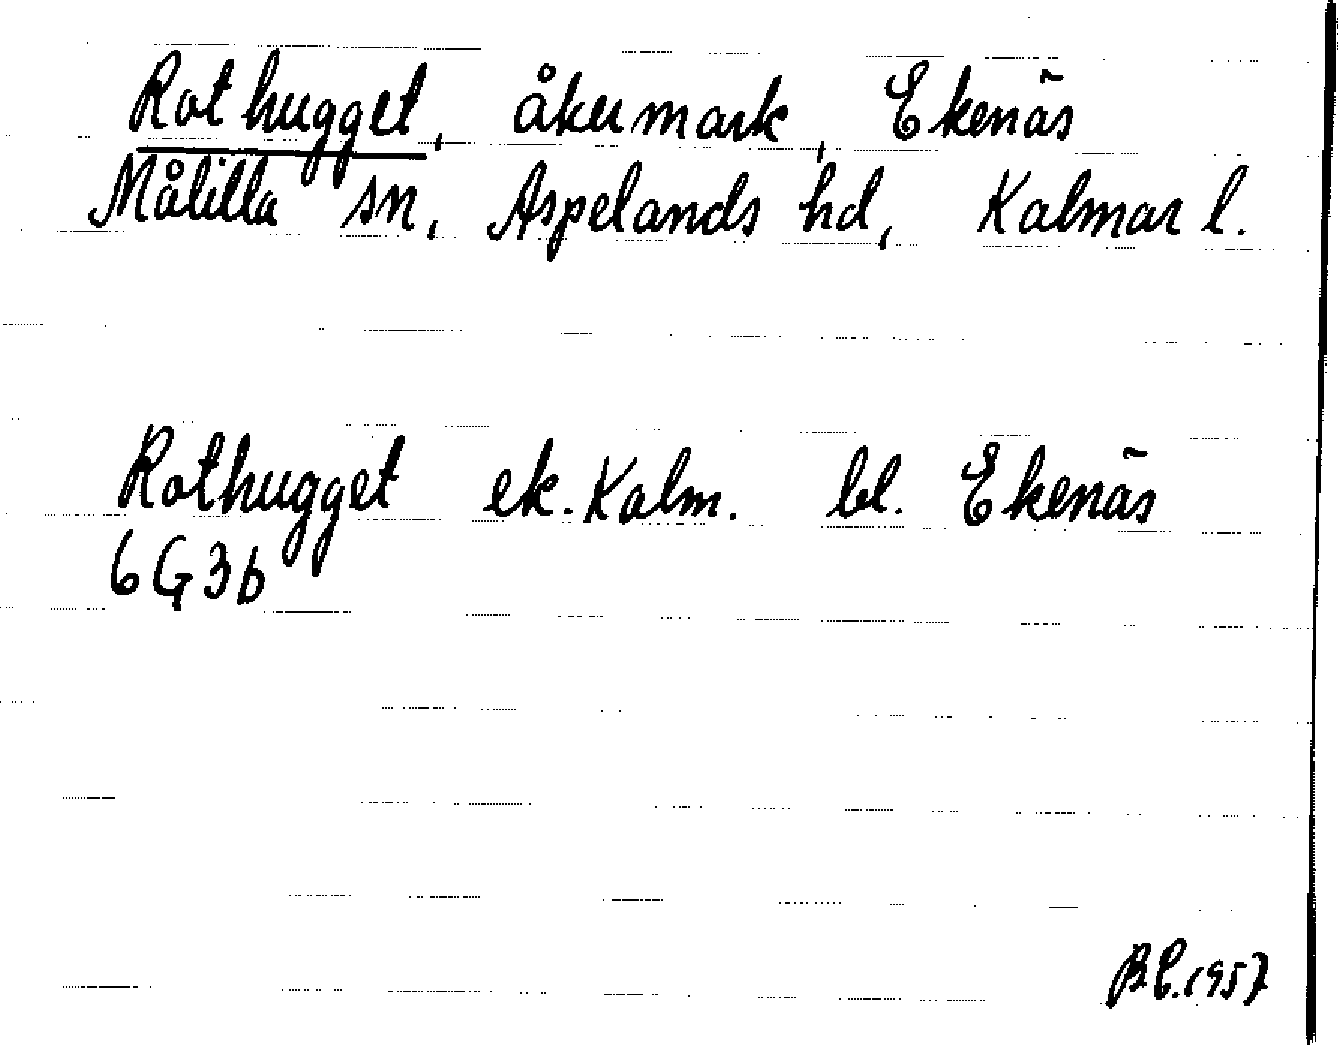 Rothugget, åkermark, Ekenäs
Målilla sn, Aspelands hd, Kalmar l.
Rothugget ek. Kalm. bl. Ekenäs
6G3b
B.C. 1957